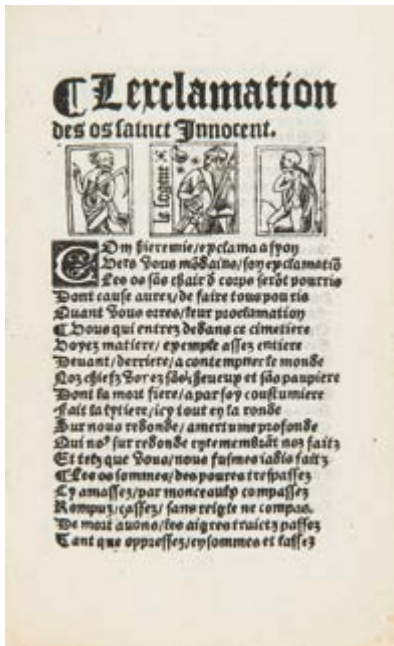 ¶ Lexclamation
des os sainct Innocent.
le Cogne
Com Hieremie/exclama a syon
Vers Vous mōdains/son exclamatiō
Les os sās chair & corps serōt pourris
Dont cause aurez/de faire tous pou ris
Quant Vous orres/leur proclamation
¶ Vous qui entrez dedans ce cimetiere
Voyez matiere/exemple assez entiere
Devant/derriere/a contempner le monde
Noz chiefz sās cheveux et sās paupiere
Dont la mort fiere/a par soy coustumiere
Fait la lytiere/icy tout en la ronde
Sur nous redonde/amertume profonde
Qui no⁹ sur redonde en remembrāt noz faitz
Et telz que Vous/nous fusmes iadis faitz
¶ Les os sommes/des poures trespassez
Cy amassez/par monceaulx compassez
Rompuz/cassez/sans reigle ne compas.
De mort avons/les aigres truictz passez
Tant que oppressez/en sommes et lassez